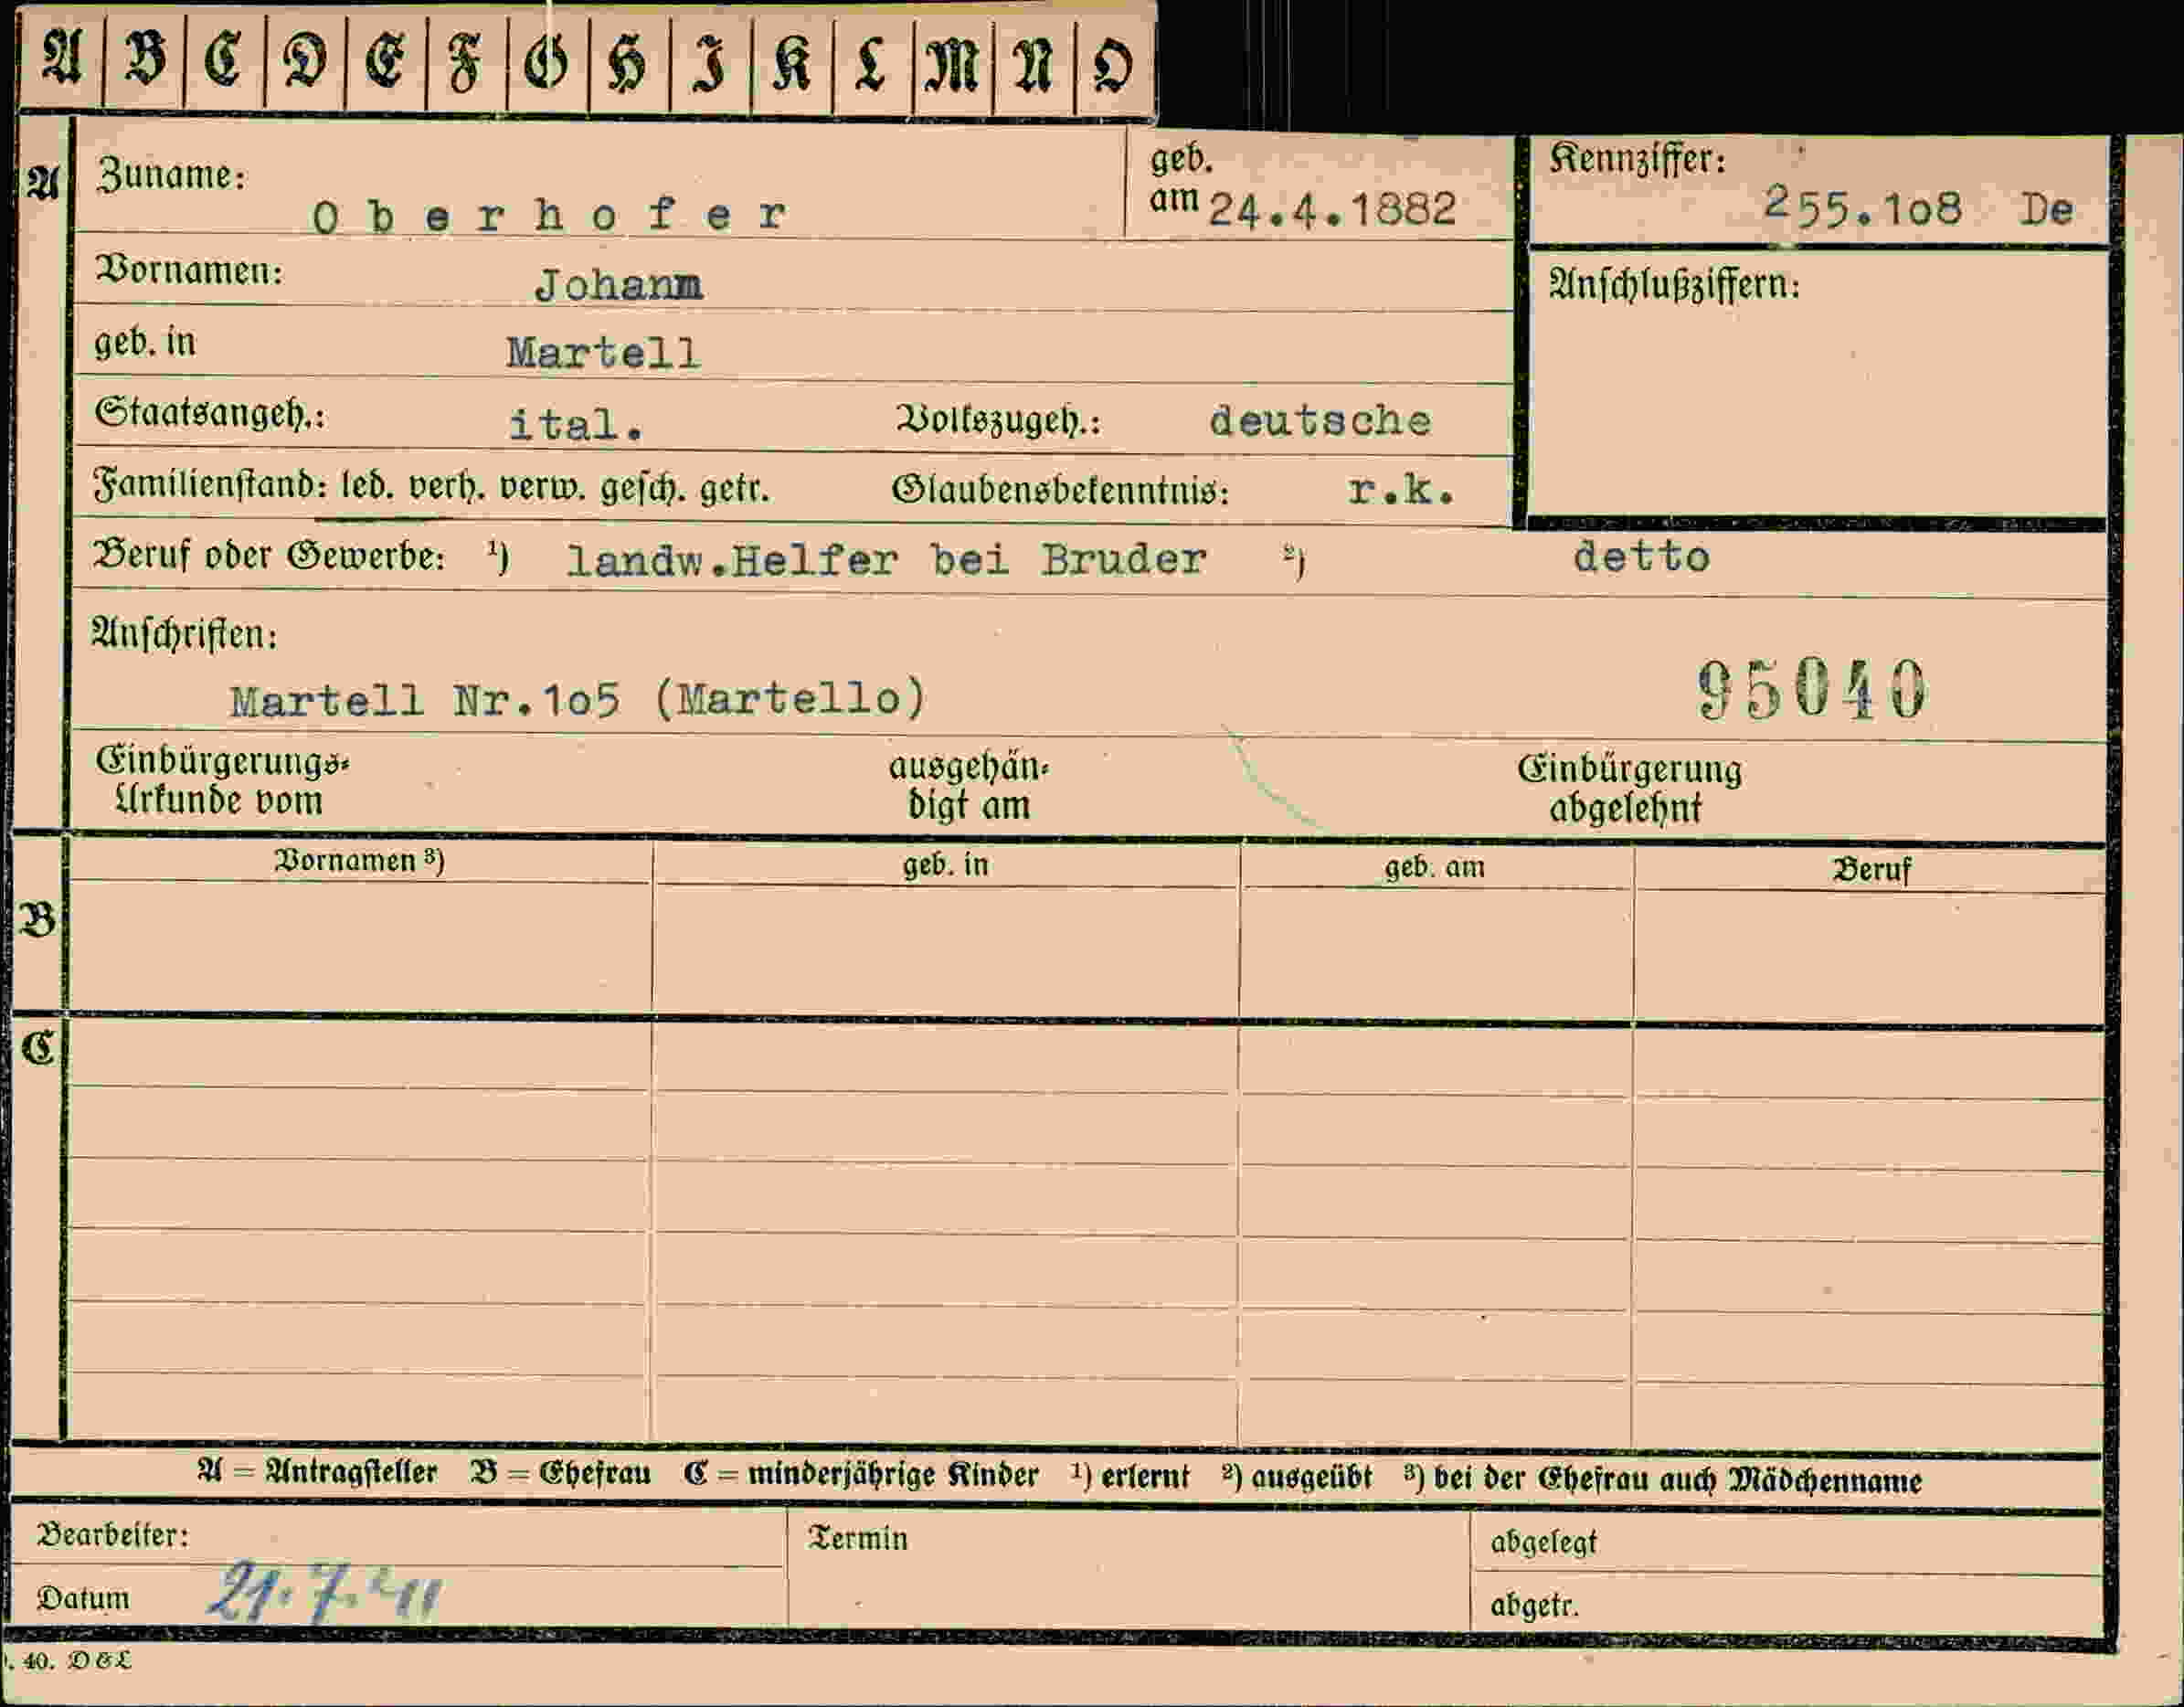 A B C D E F G H I K L M N O
A Zuname: Oberhofer geb. am 24.4.1882 Kennziffer: 255.1o8 De
Vornamen: Johann Anschlußziffern:
geb. in Martell
Staatsangeh.: ital. Volkszugeh.: deutsche
Familienstand: led. verh. verw. gesch. getr. Glaubensbekenntnis: r.k.
Beruf oder Gewerbe: ¹) landw.Helfer bei Bruder ²) detto
Anschriften:
Martell Nr.1o5 (Martello) 95040
Einbürgerungs- ausgehän- Einbürgerung
Urkunde vom digt am abgelehnt
Vornamen ³) geb. in geb. am Beruf
B
C
A = Antragsteller B = Ehefrau C = minderjährige Kinder ¹) erlernt ²) ausgeübt ³) bei der Ehefrau auch Mädchenname
Bearbeiter: Termin abgelegt
Datum 21.7. abgetr.
40. D & L